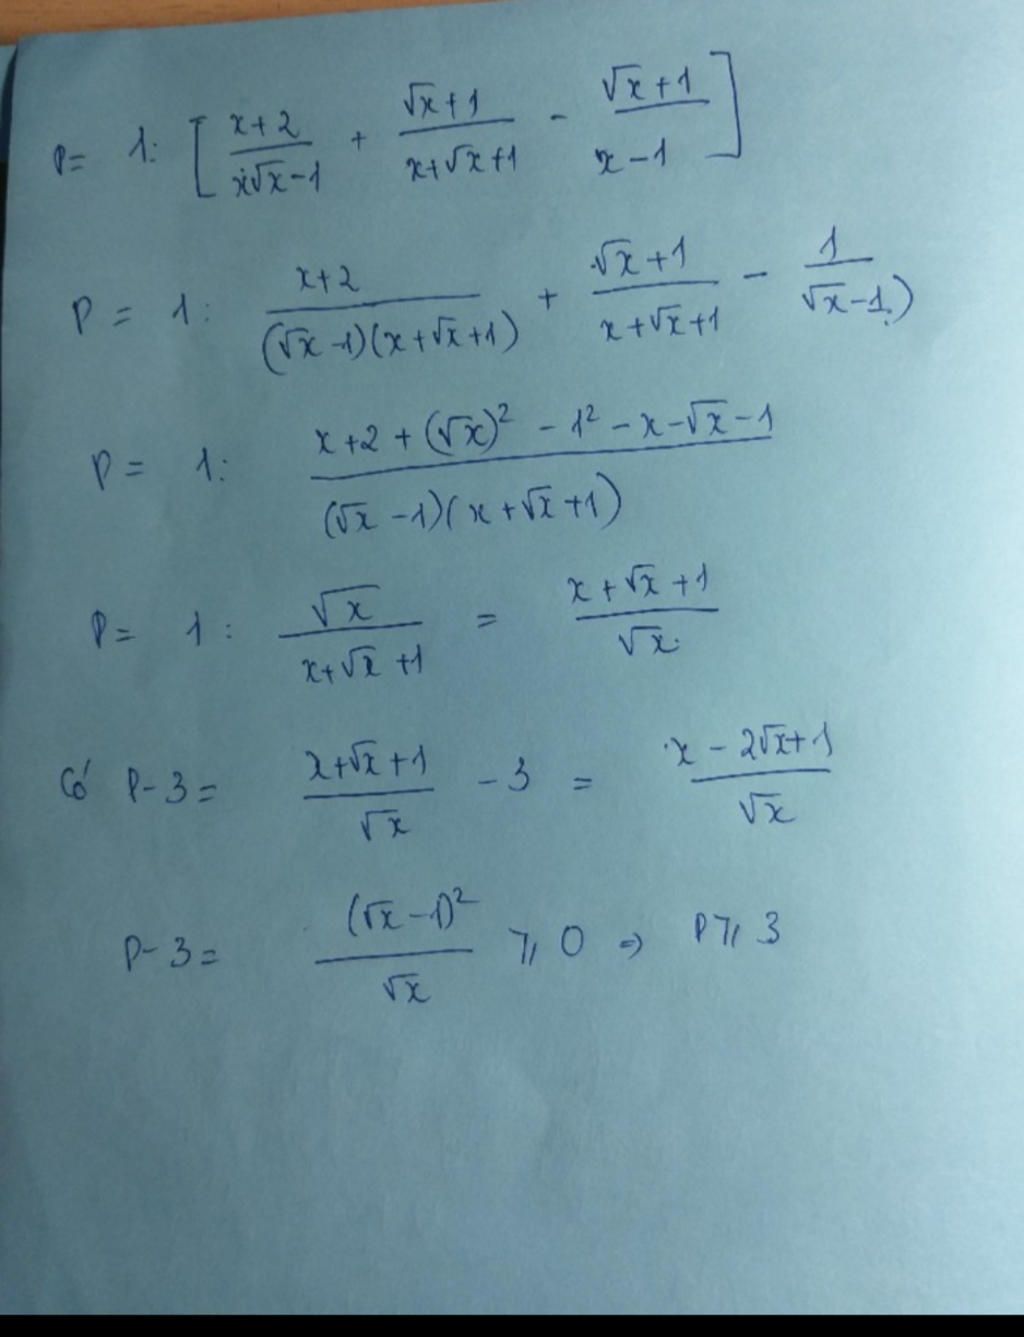 P = 1 : [ (x+2)/(x√x-1) + (√x+1)/(x+√x+1) - (√x+1)/(x-1) ]
P = 1 : (x+2)/((√x-1)(x+√x+1)) + (√x+1)/(x+√x+1) - 1/(√x-1) )
P = 1 : (x+2+(√x)² - 1² - x-√x-1)/((√x-1)(x+√x+1))
P = 1 : √x/(x+√x+1) = (x+√x+1)/√x
Có P-3 = (x+√x+1)/√x - 3 = (x - 2√x+1)/√x
P-3 = (√x-1)²/√x ≥ 0 ⇒ P ≥ 3